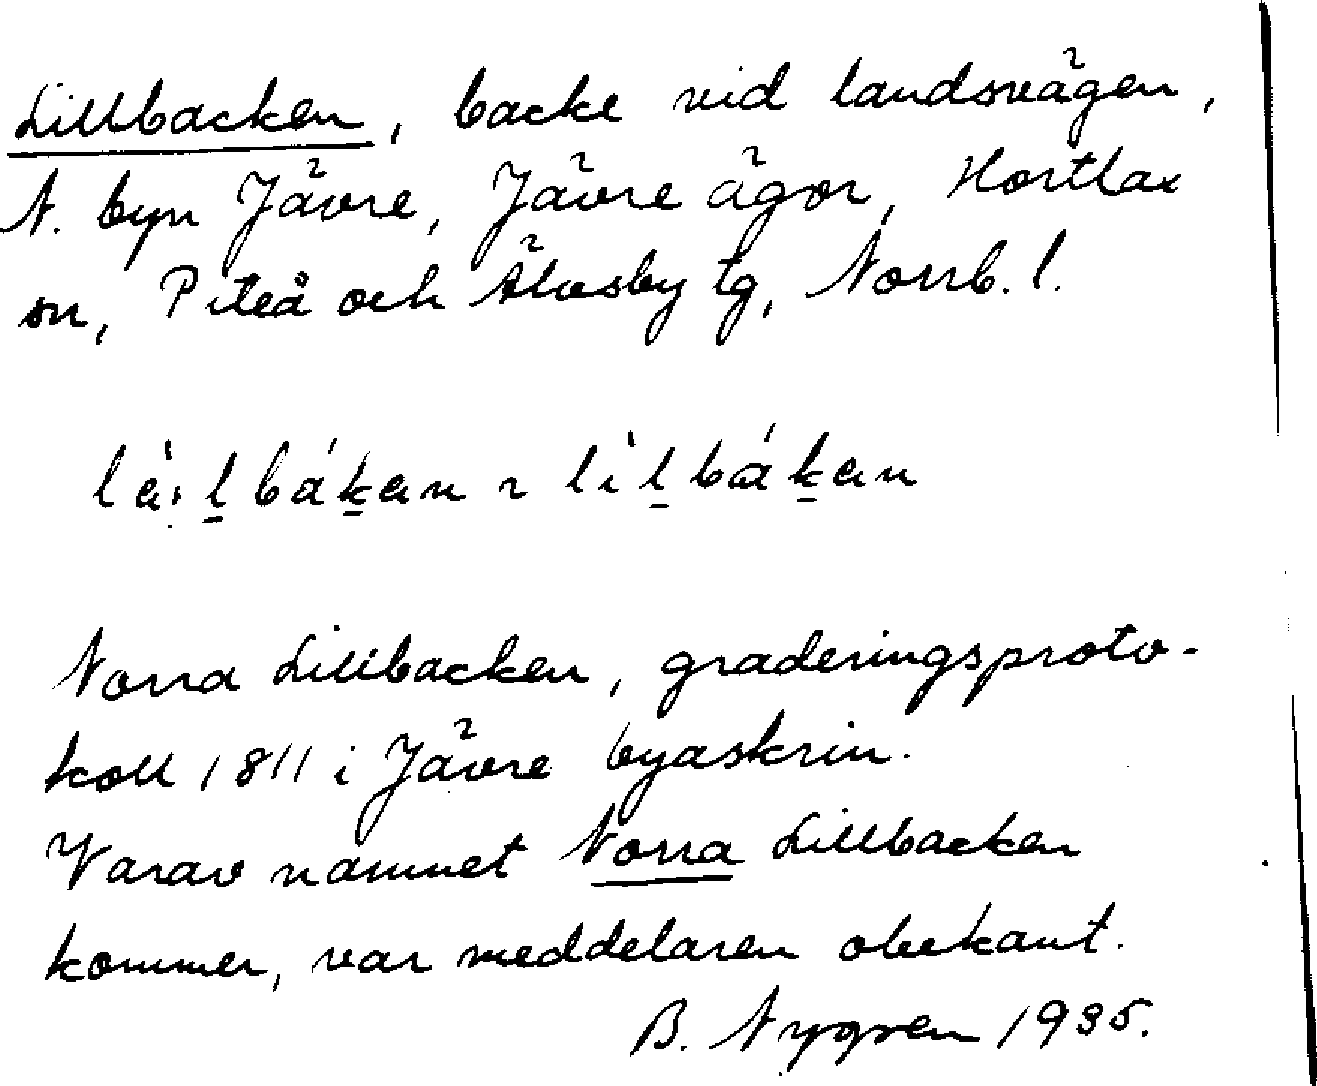 Lillbacken, backe vid landsvägen,
N. byn Jävre, Jävre ägor, Hortlax
sn, Piteå och Älvsby tg, Norrb. l.
là:l̠bák̠en ~ lìl̠bák̠en
Norra Lillbacken, graderingsproto-
koll 1811 i Jävre byaskrin.
Varav namnet Norra Lillbacken
kommer, var meddelaren obekant.
B. Nygren 1935.